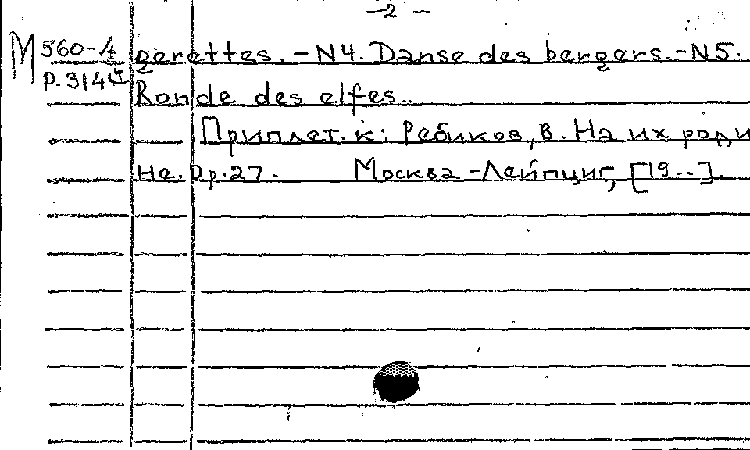 – 2 –
M 560-4 gerettes. – N4. Danse des bergers. – N5.
P. 314 Ronde des elfes.
Приплет. к: Ребиков, В. На их роди
не. Op. 27. Москва – Лейпциг, [19..].